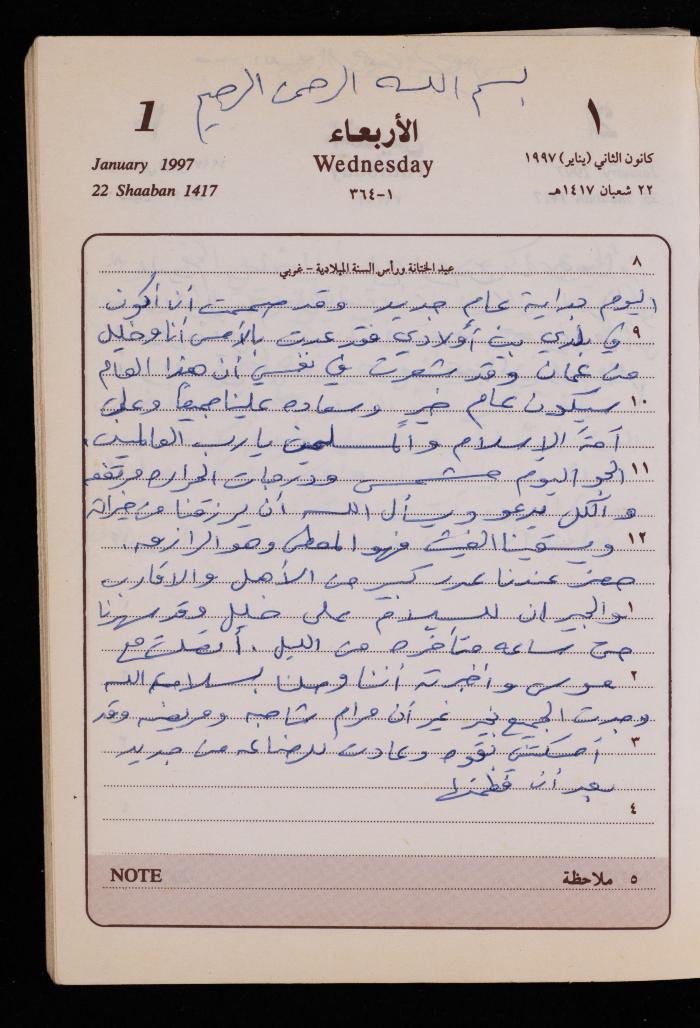 بسم الله الرحمن الرحيم
1
الأربعاء
١
January 1997
Wednesday
كانون الثاني (يناير) ١٩٩٧
22 Shaaban 1417
٣٦٤-١
٢٢ شعبان ١٤١٧هـ
٨
عيد الختانة ورأس السنة الميلادية - غربي
اليوم بداية عام جديد وقد صممت أن أكون
٩ في بلدي بين أولادي فقد عدت بالأمس أنا وخليل
من عمان وقد شعرت في نفسي أن هذا العام
١٠ سيكون عام خير وسعاده علينا جميعا وعلى
أمة الإسلام والمسلمين يا رب العالمين.
١١ الجو اليوم مشمس ودرجات الحراره مرتفعه
والكل يدعو ويسأل الله أن يرزقنا من خيراته
١٢ ويسقينا الغيث فهو المعطي وهو الرازق.
حضر عندنا عدد كبير من الأهل والاقارب
١ والجيران للسلام على خليل وقد سهرنا
حتى ساعه متأخره من الليل. أتصلت مع
٢ موسى وأخبرته أننا وصلنا بسلامة الله
وجدت الجميع بخير غير أن مرام شاحبه ومريضه وقد
٣ أمسكتني بقوه وعادت للرضاعه من جديد
بعد أن فطمتها
٤
NOTE
٥ ملاحظة